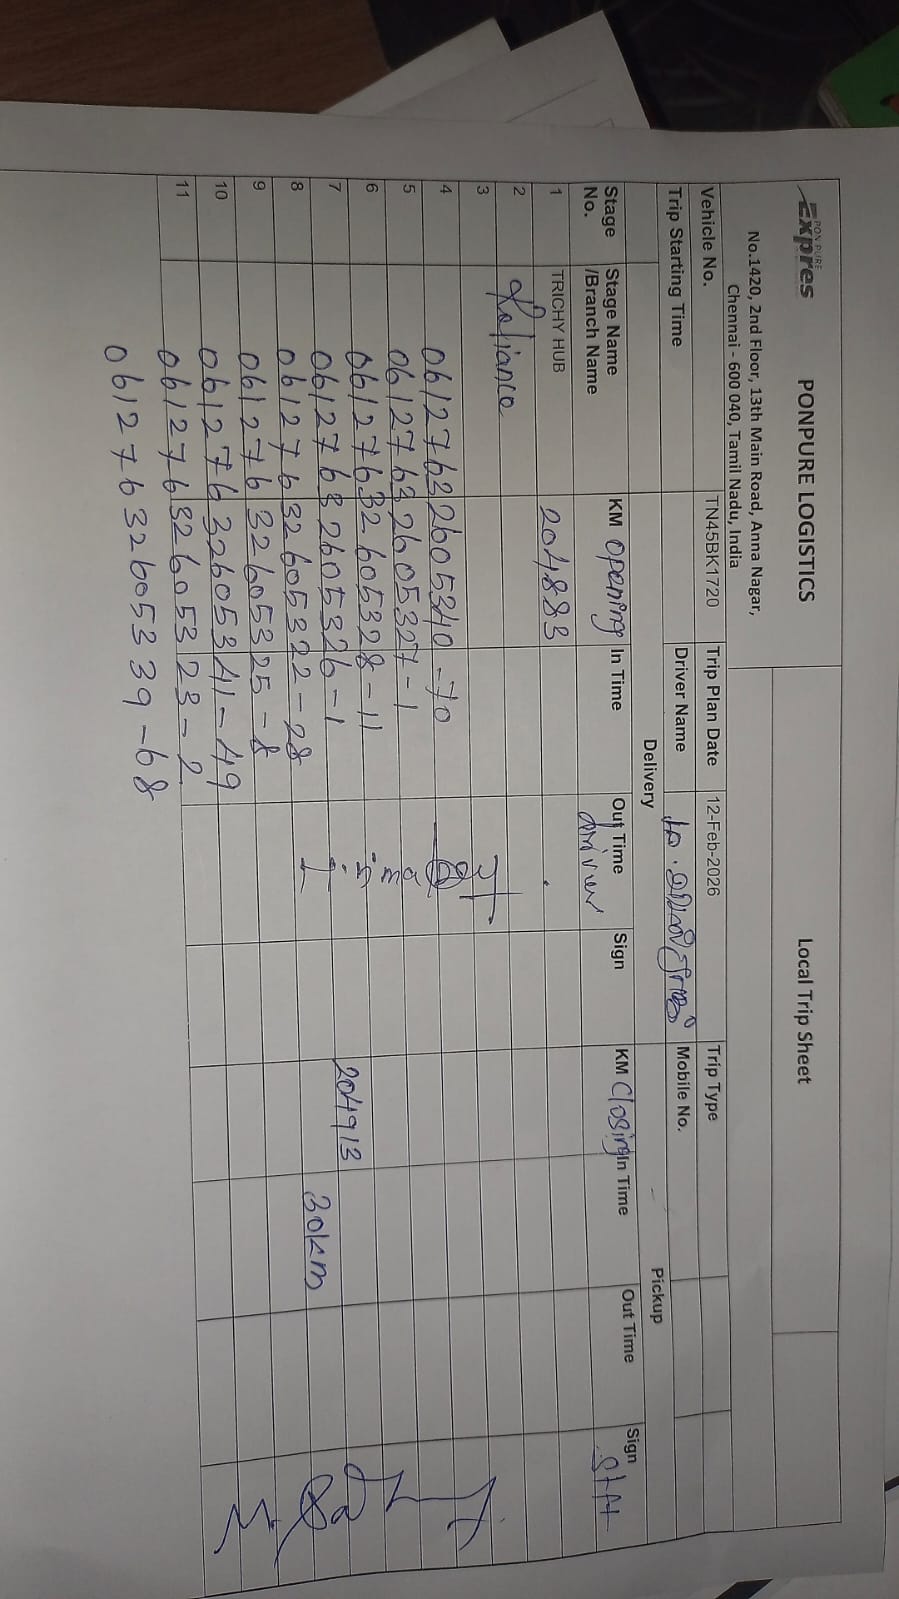 PON PURE
Expres
PONPURE LOGISTICS
Local Trip Sheet
No.1420, 2nd Floor, 13th Main Road, Anna Nagar,
Chennai - 600 040, Tamil Nadu, India
Vehicle No. TN45BK1720 Trip Plan Date 12-Feb-2026 Trip Type
Trip Starting Time Driver Name Mobile No.
Delivery Pickup
Stage No. Stage Name /Branch Name KM opening In Time Out Time driver Sign KM Closing In Time Out Time Sign
1 TRICHY HUB 204883
2 Reliance
3
4 06127632605340-70
5 06127632605327-1
6 06127632605328-11
7 06127632605326-1 204913
8 06127632605322-28 30km
9 06127632605325-8
10 06127632605341-49
11 06127632605323-2
06127632605339-68